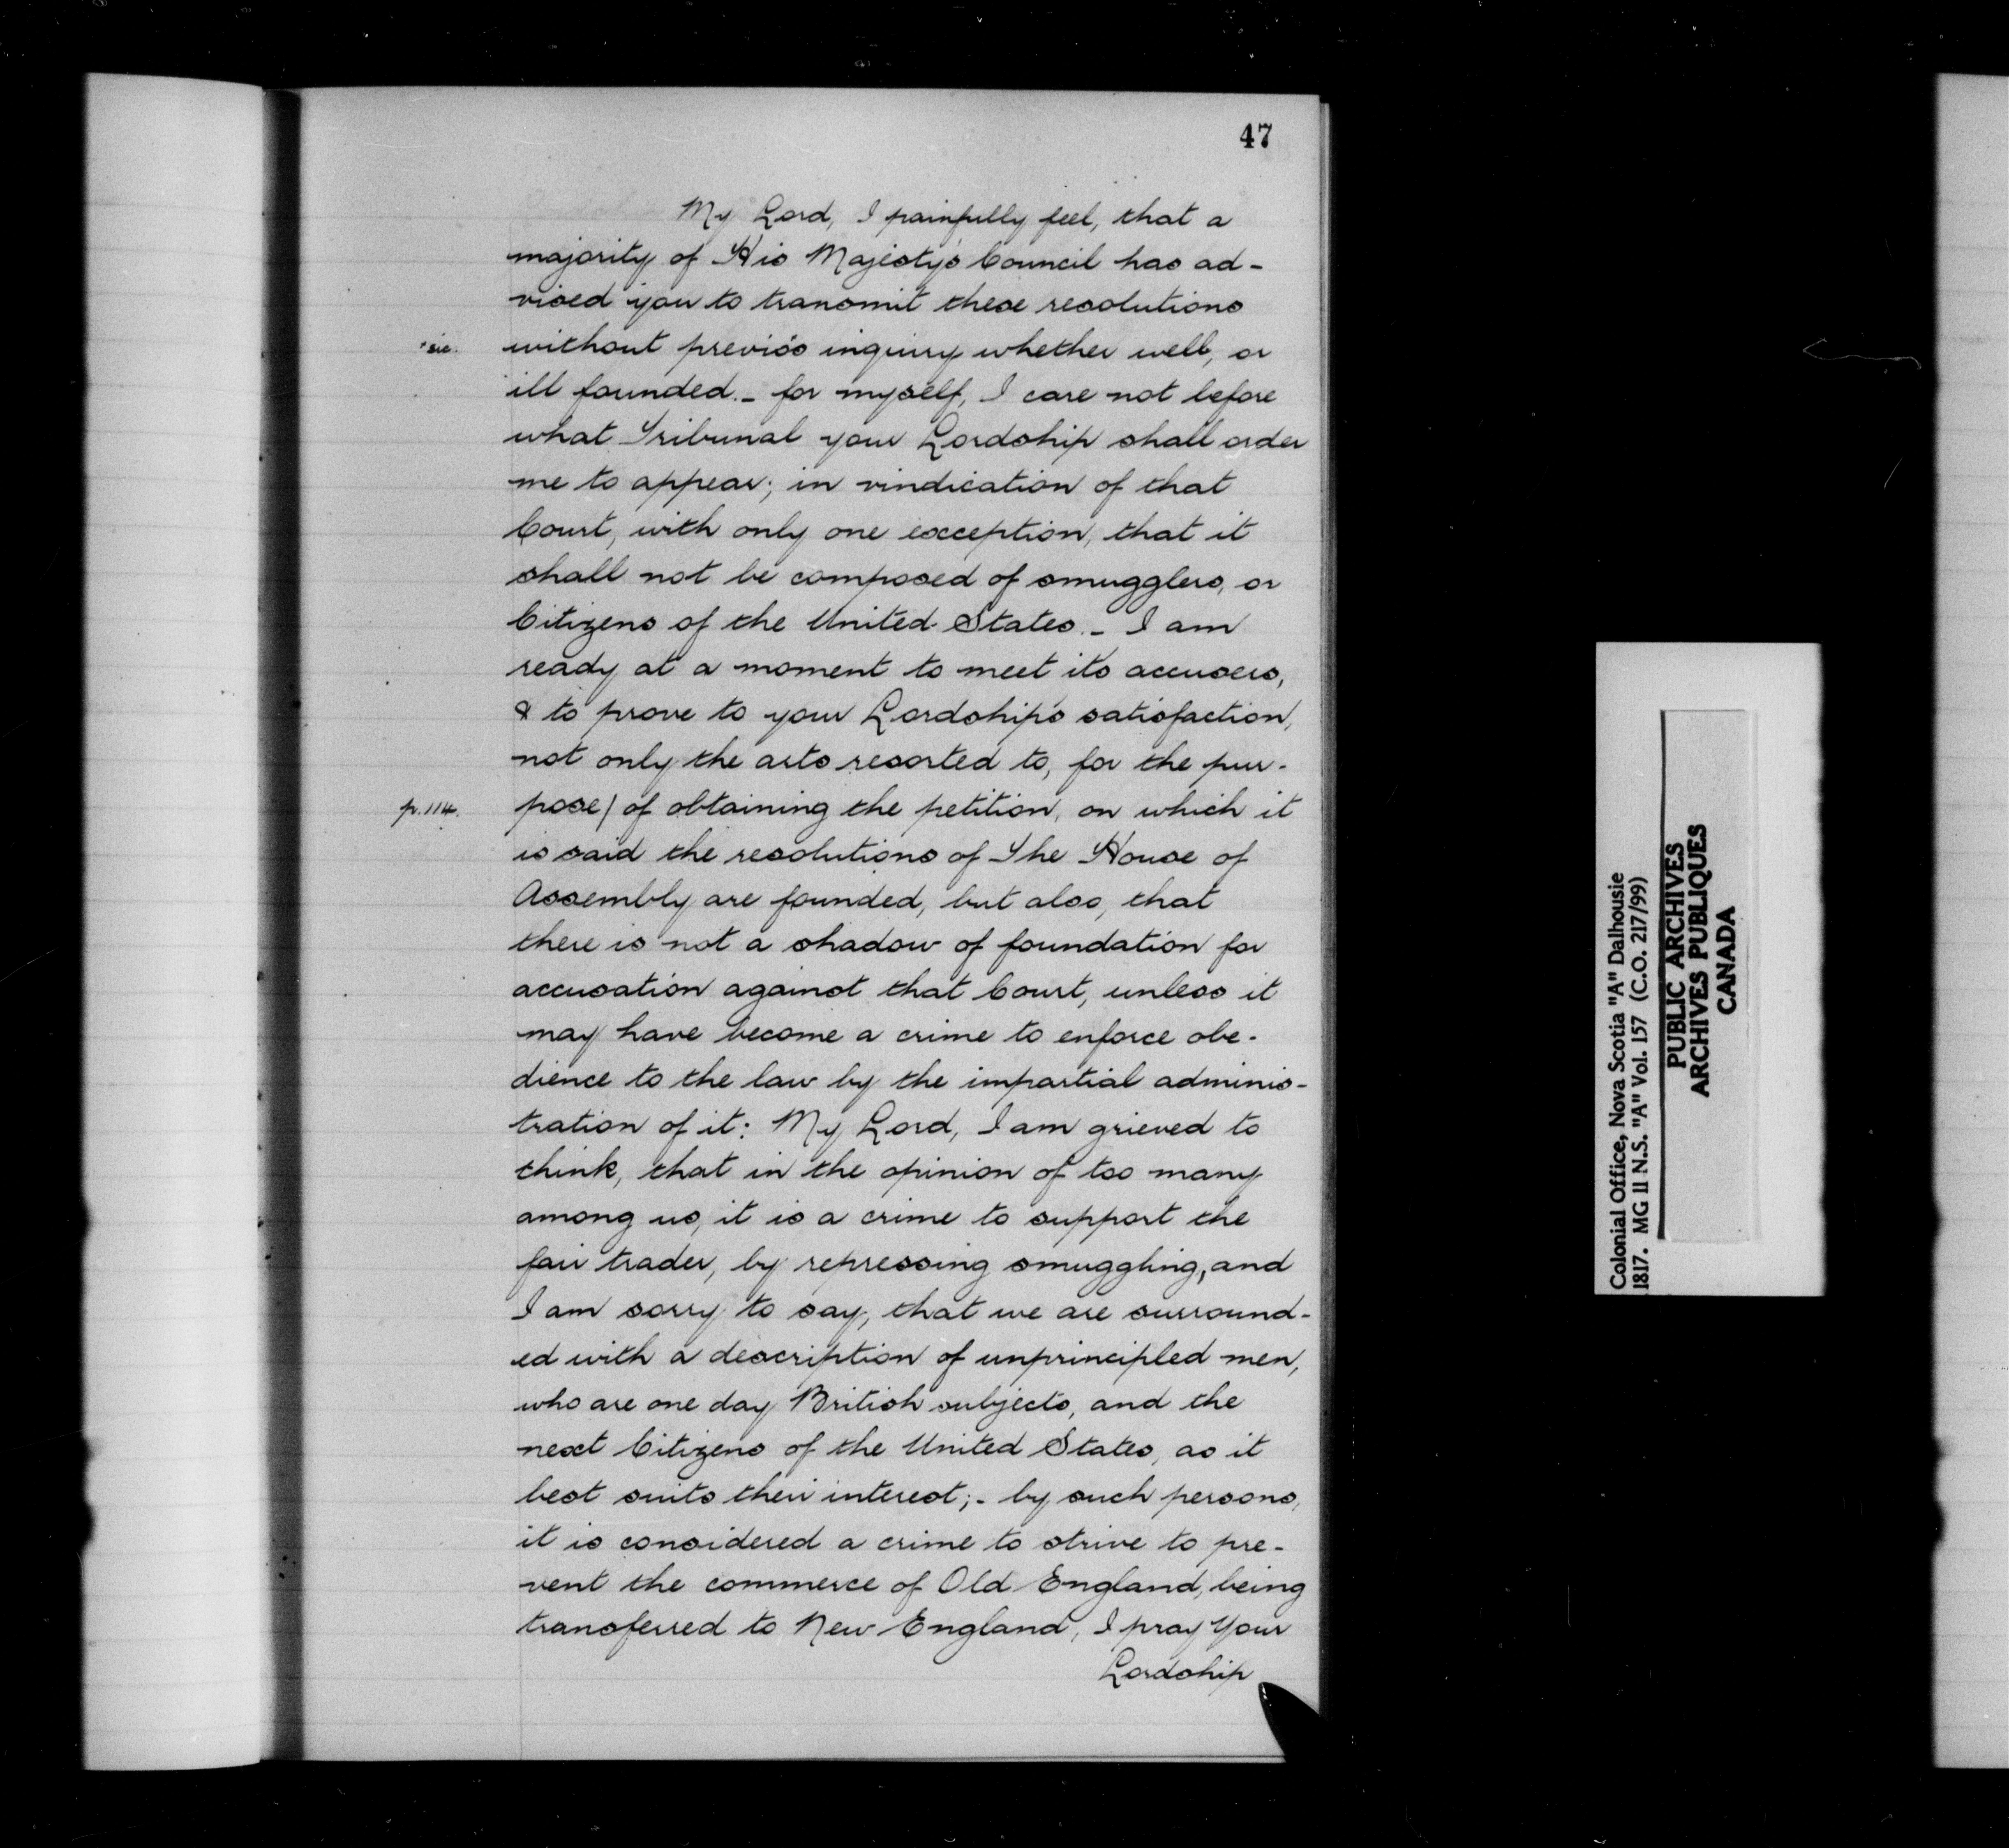 47
My Lord, I painfully feel, that a
majority of His Majesty's Council has ad-
vised you to transmit these resolutions
*sic. without previo's inquiry whether well, or
ill founded.- for myself, I care not before
what Tribunal your Lordship shall order
me to appear; in vindication of that
Court, with only one exception, that it
shall not be composed of smugglers, or
Citizens of the United States.- I am
ready at a moment to meet its accusers,
& to prove to your Lordship's satisfaction,
not only the arts resorted to, for the pur-
p.114. pose/ of obtaining the petition, on which it
is said the resolutions of The House of
Assembly are founded, but also, that
there is not a shadow of foundation for
accusation against that Court, unless it
may have become a crime to enforce obe-
dience to the law by the impartial adminis-
tration of it: My Lord, I am grieved to
think, that in the opinion of too many
among us, it is a crime to support the
fair trader, by repressing smuggling, and
I am sorry to say, that we are surround-
ed with a description of unprincipled men,
who are one day British subjects, and the
next Citizens of the United States, as it
best suits their interest;- by such persons,
it is considered a crime to strive to pre-
vent the commerce of Old England, being
transferred to New England, I pray Your
Lordship
Colonial Office, Nova Scotia "A" Dalhousie
1817. MG 11 N.S. "A" Vol. 157 (C.O. 217/99)
PUBLIC ARCHIVES
ARCHIVES PUBLIQUES
CANADA